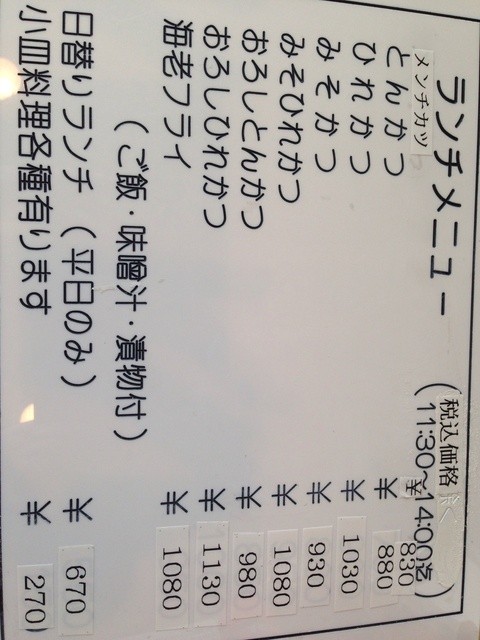 ランチメニュー (11:30~14:00迄)
税込価格
メンチカツ ¥ 830
とんかつ ¥ 880
ひれかつ ¥ 1030
みそかつ ¥ 930
みそひれかつ ¥ 1080
おろしとんかつ ¥ 980
おろしひれかつ ¥ 1130
海老フライ ¥ 1080
(ご飯・味噌汁・漬物付)
日替りランチ (平日のみ) ¥ 670
小皿料理各種有ります ¥ 270